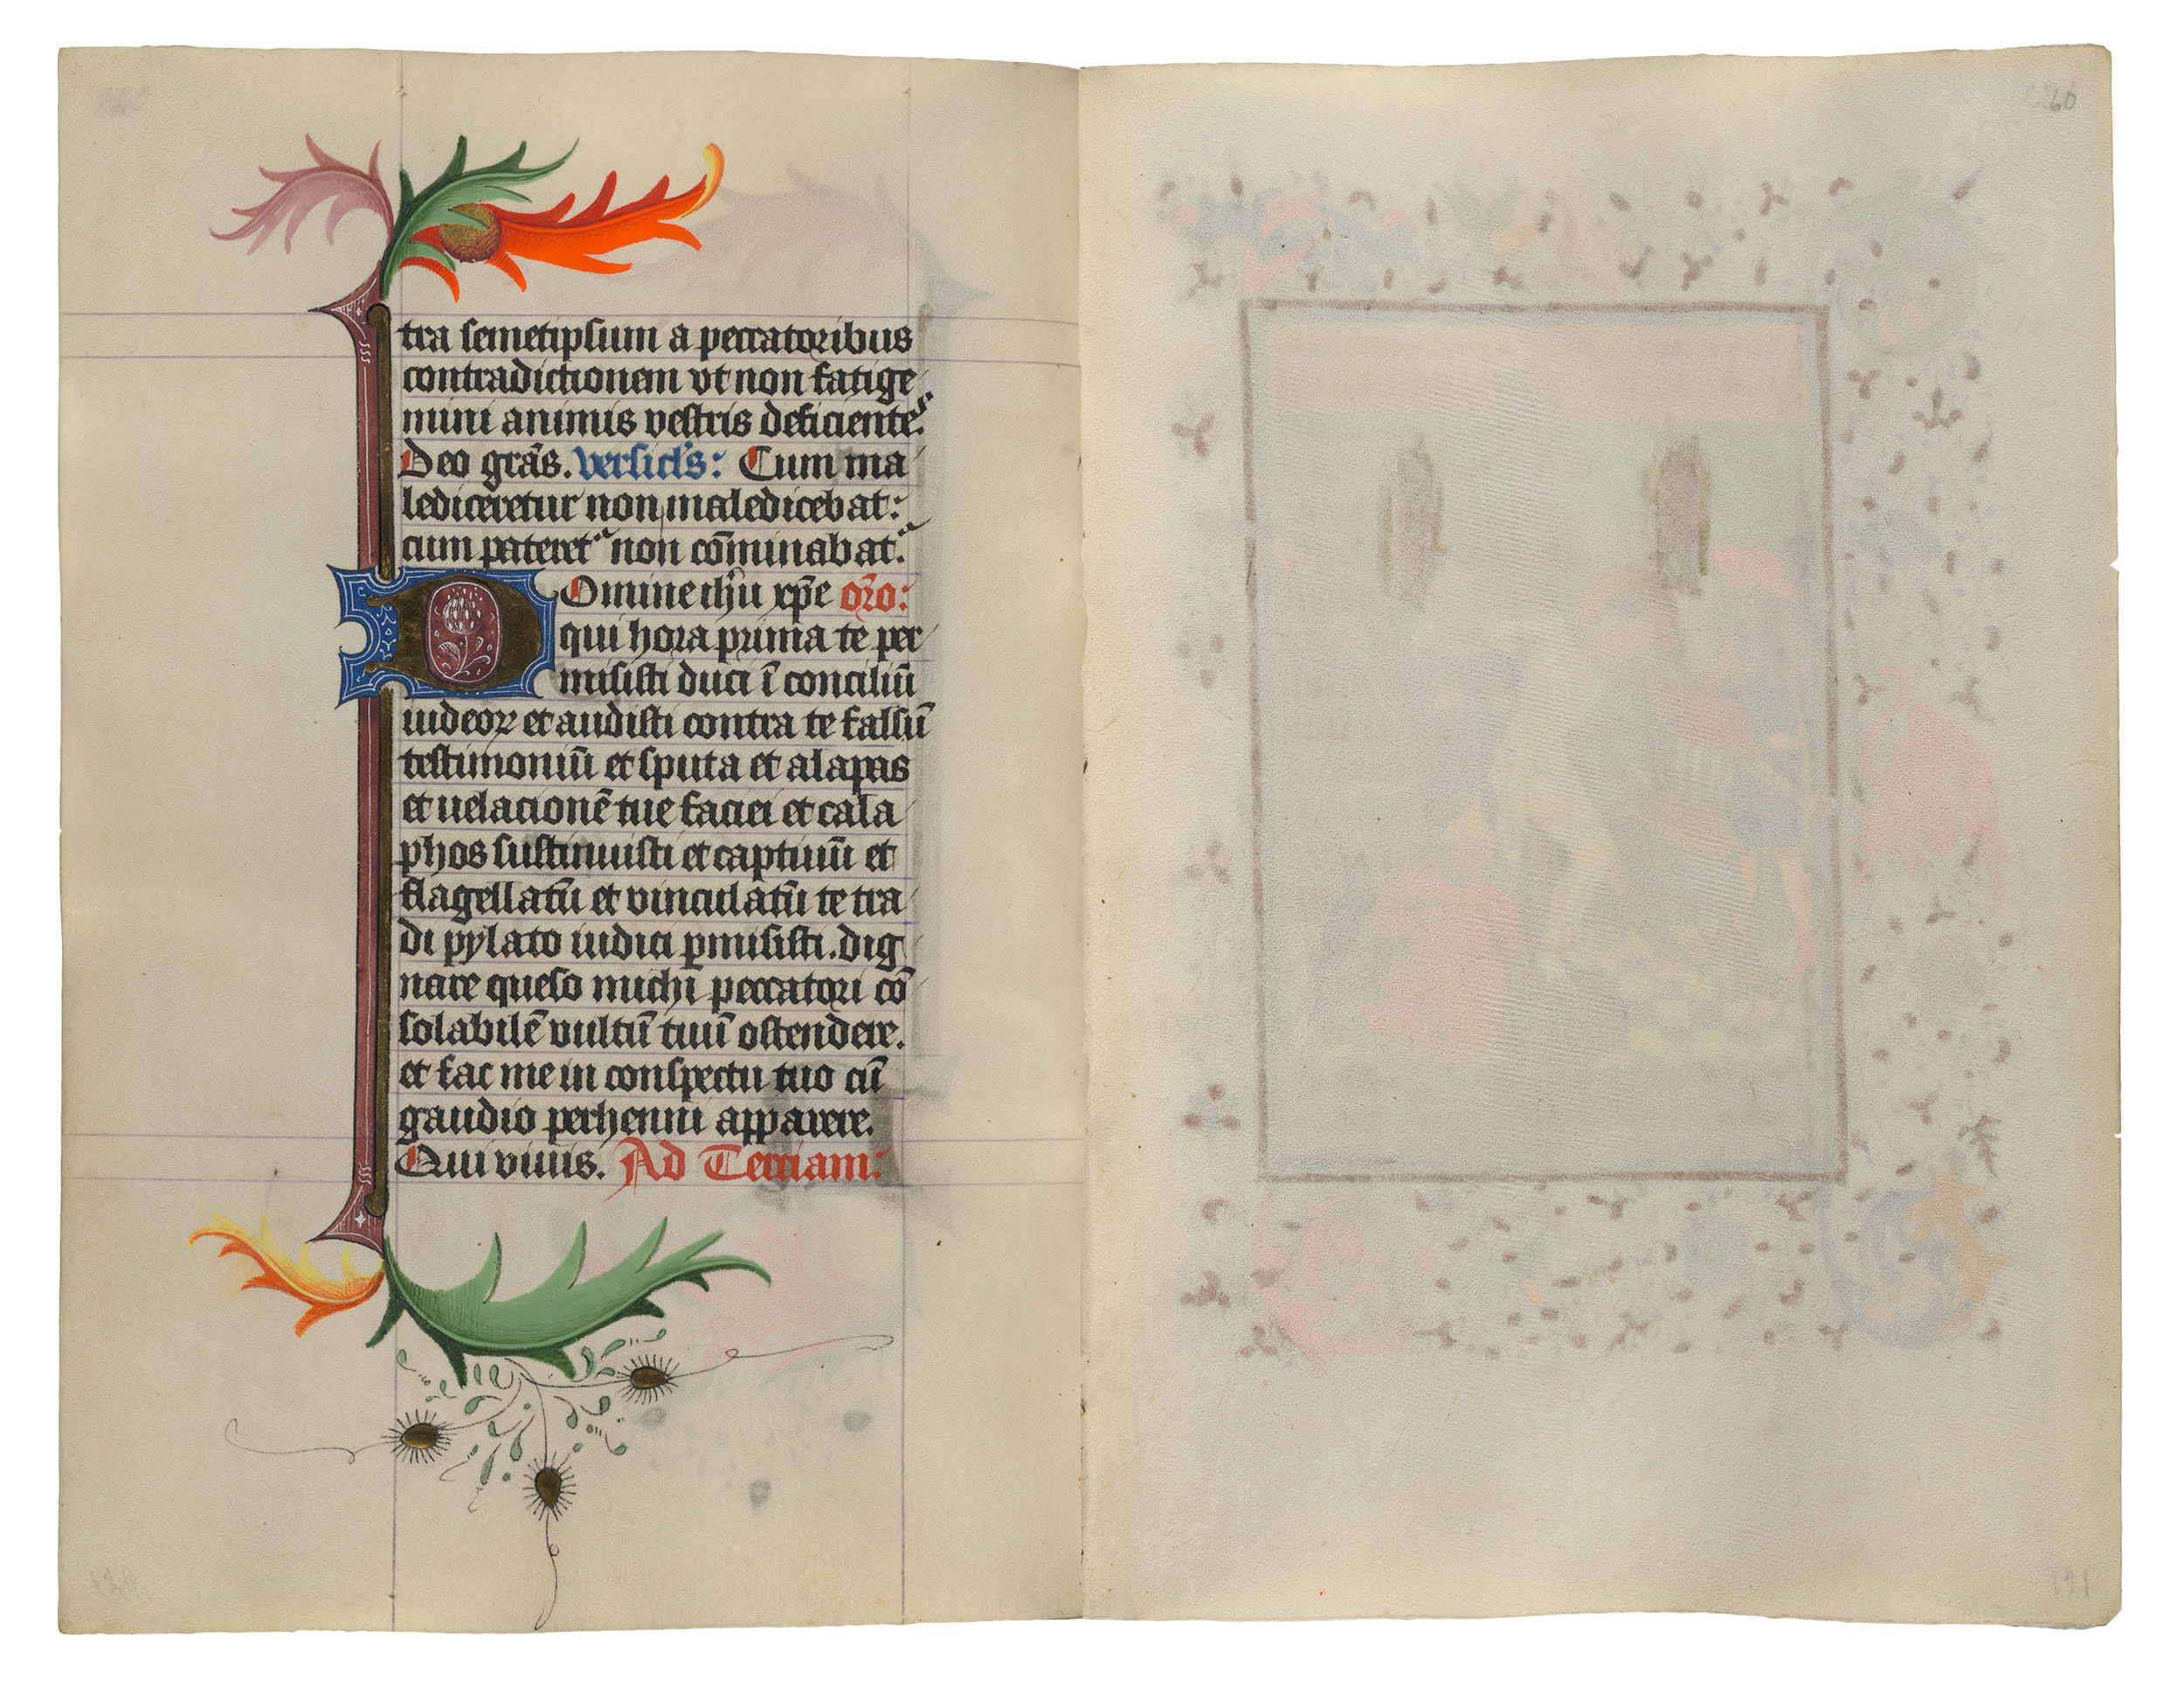 tra semetipsum a peccatoribus
contradictionem vt non fatige
mini animis vestris deficientes.
Deo grãs. versicl's: Cum ma
lediceretur non maledicebat:
cum pateret᷑ non cõminabat᷑.
Omine ihũ xp̃e or̃o:
qui hora prima te per
misisti duci ĩ conciliũ
iudeoꝝ et audisti contra te falsũ
testimoniũ et sputa et alapas
et uelacionẽ tue faciei et cala
phos sustinuisti et captiuũ et
flagellatũ et vinculatũ te tra
di pylato iudici ꝑmisisti. dig
nare queso michi peccatori cõ
solabilẽ vultũ tuũ ostendere.
et fac me in conspectu tuo cũ
gaudio perhenni apparere.
Qui viuis. Ad Terciam:
121